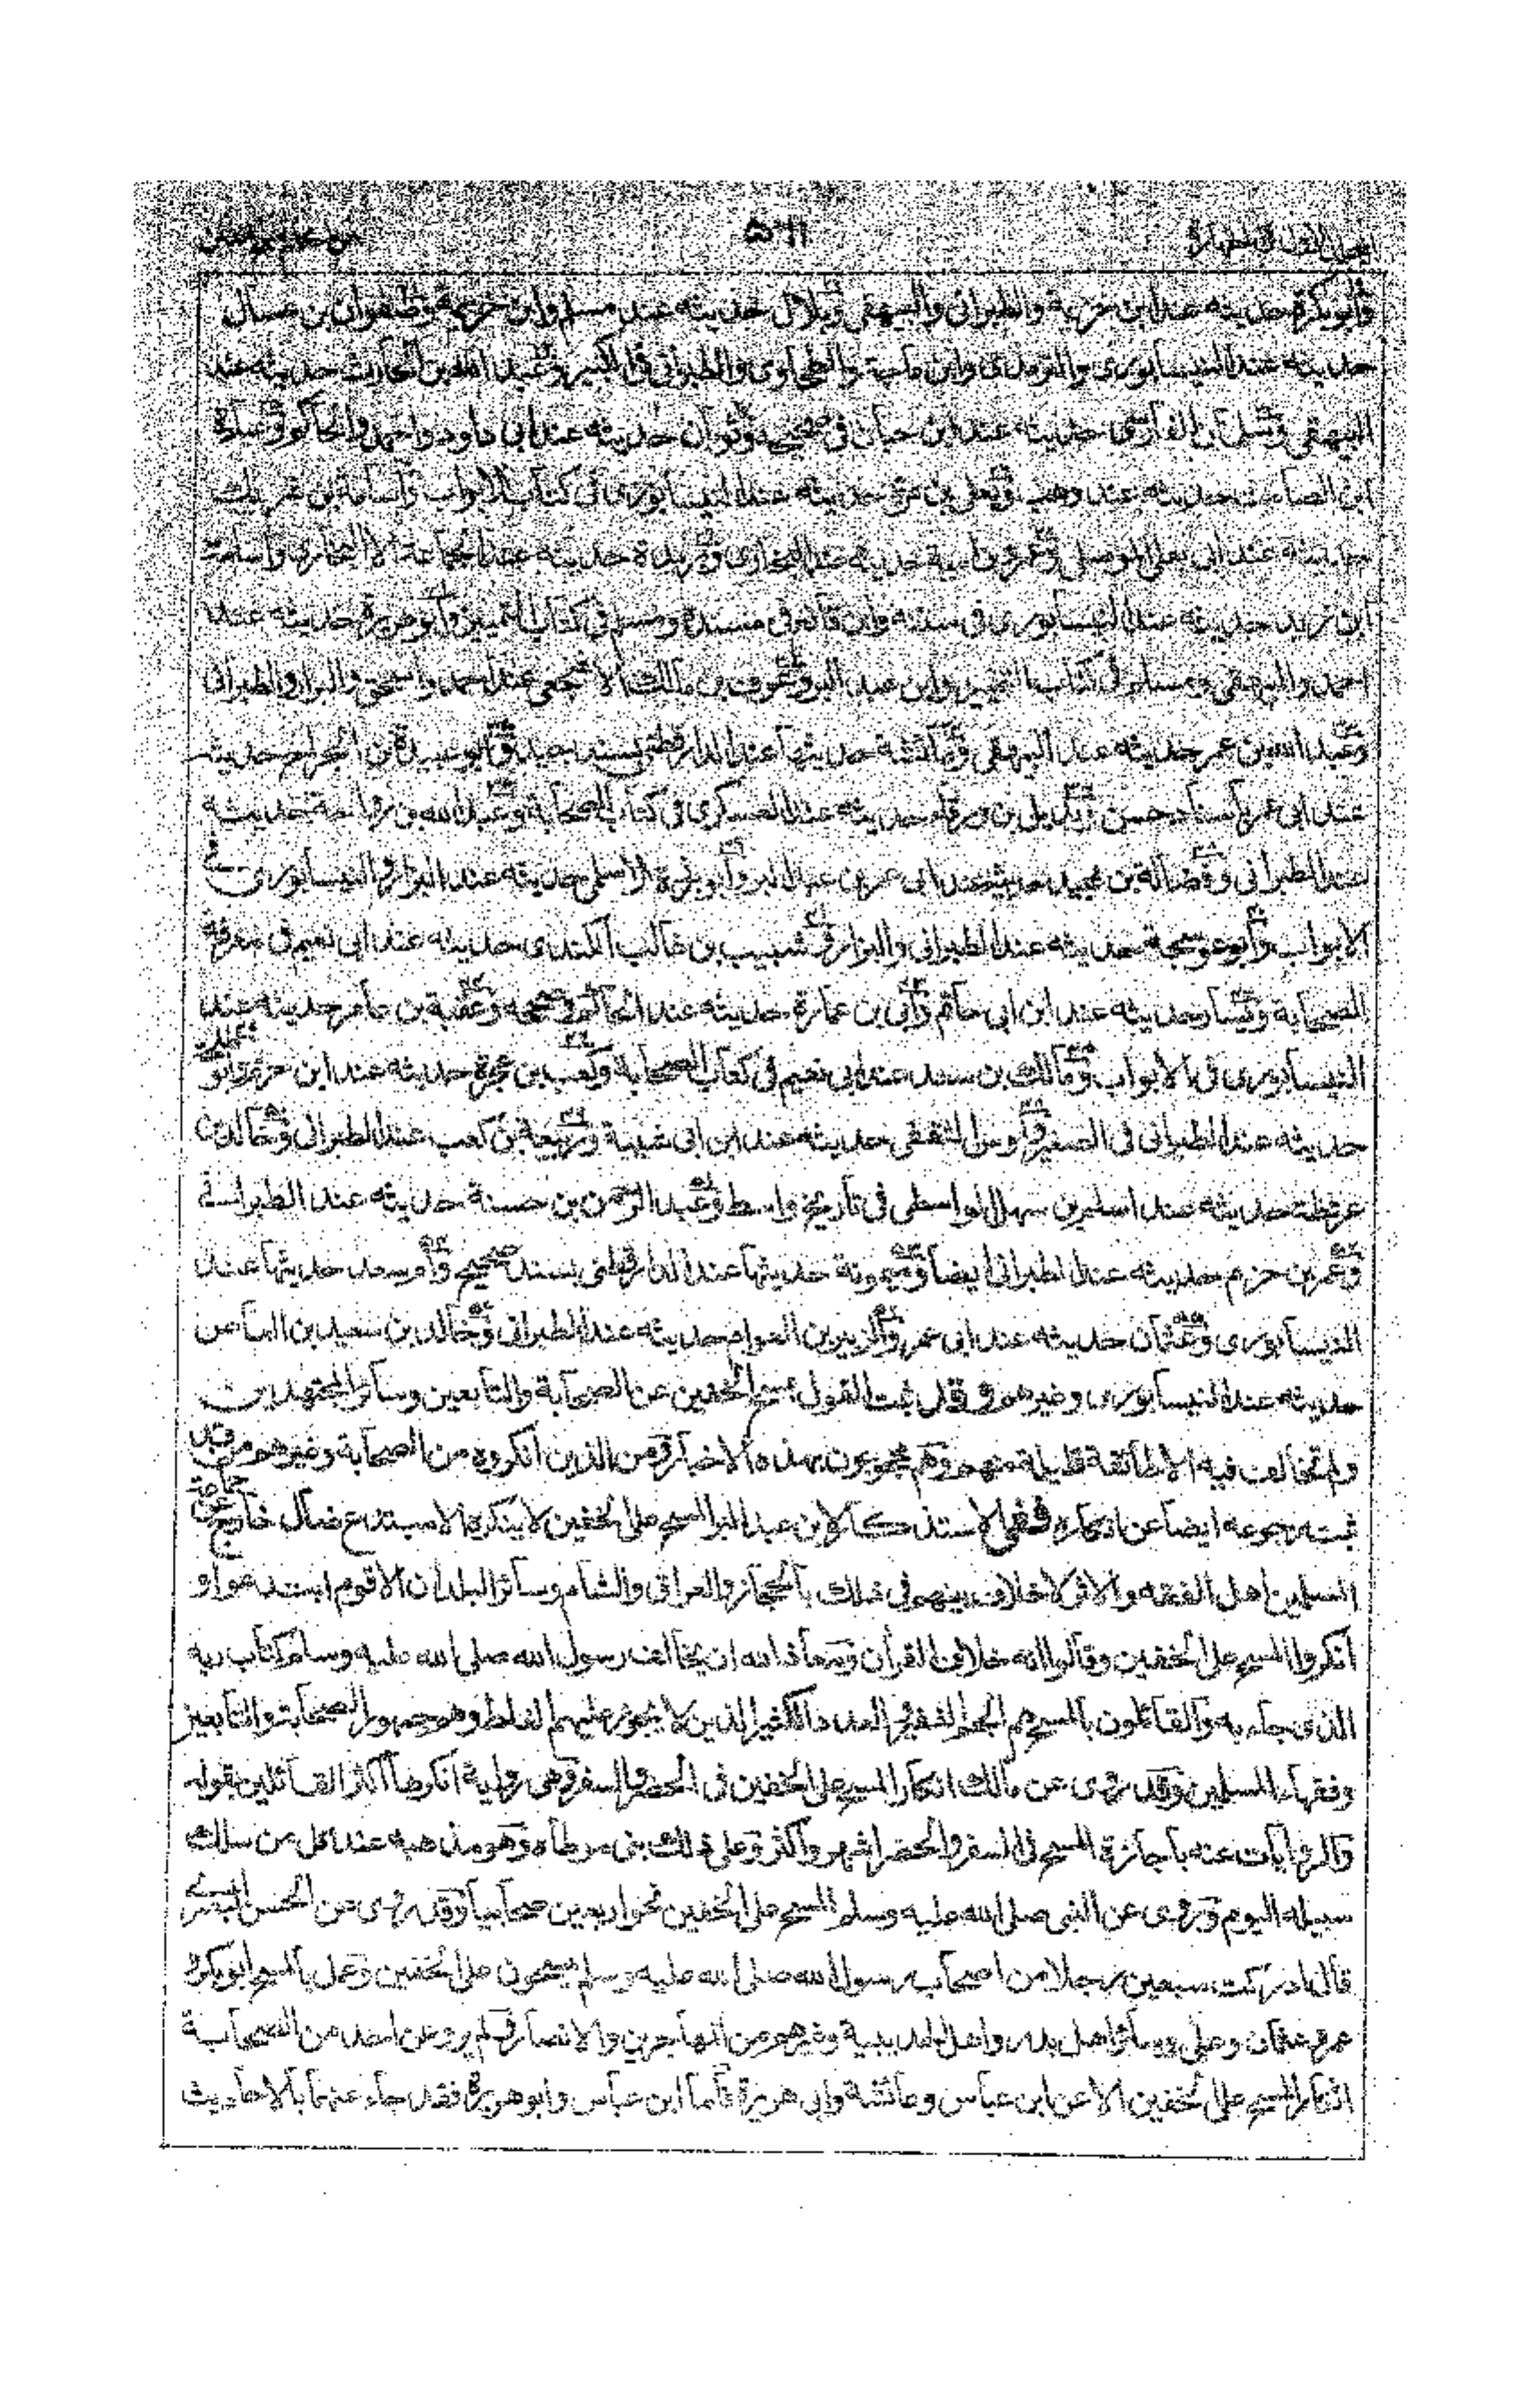 وابوبكرة حديثه عند ابن خزيمة والطبرانى والبيهقى وبلال حديثه عند مسلم وابن خزيمة وصفوان بن عسال
حديثه عند النيسابورى والترمذى وابن ماجة والطحاوى والطبرانى فى الكبير وعبد الله بن الحارث حديثه عند
البيهقى وسلمان الفارسى حديثه عند ابن حبان فى صحيحه وثوبان حديثه عند ابى داود واحمد والحاكم وعبادة
ابن الصامت حديثه عند وهب ويعلى بن مرة حديثه عند النيسابورى فى كتاب الابواب واسامة بن شريك
حديثه عند ابى يعلى الموصلى وعمرو بن امية حديثه عند البخارى وبريدة حديثه عند الجماعة الا البخارى واسامة
ابن زيد حديثه عند النيسابورى فى سننه وابن قانع فى مسنده ومسلم فى كتاب التمييز وابوهريرة حديثه عند
احمد والبيهقى ومسلم فى كتاب التمييز وابن عبد البر وعوف بن مالك الاشجعى عند احمد واسحق والبزار والطبرانى
وعبد الله بن عمر حديثه عند البيهقى وعائشة حديثها عند الدارقطنى بسند جيد وابو عبيدة بن الجراح حديثه
عند ابى عمر باسناد حسن وبديل بن ورقاء حديثه عند العسكرى فى كتاب الصحابة وعبد الله بن رواحة حديثه
عند الطبرانى وفضالة بن عبيد حديثه عند ابى عمر بن عبد البر وابوبرزة الاسلمى حديثه عند البزار والنيسابورى فى
الابواب وابوعوسجة حديثه عند الطبرانى والبزار وشبيب بن غالب الكندى حديثه عند ابى نعيم فى معرفة
الصحابة ويسار حديثه عند ابن ابى حاتم وابى بن عمارة حديثه عند الحاكم فى صحيحه وعقبة بن عامر حديثه عند
النيسابورى فى الابواب ومالك بن سعد عند ابى نعيم فى كتاب الصحابة وكعب بن عجرة حديثه عند ابن حزم وابو
حديثه عند الطبرانى فى الصغير واوس الثقفى حديثه عند ابن ابى شيبة وربيعة بن كعب عند الطبرانى وخالد بن
عرفطة حديثه عند اسلم بن سهل الواسطى فى تاريخ واسط وعبد الرحمن بن حسنة حديثه عند الطبرانى
وعمرو بن حزم حديثه عند الطبرانى ايضا وميمونة حديثها عند الدارقطنى بسند صحيح وام سعد حديثها عند
النيسابورى وعثمان حديثه عند ابى عمر والزبير بن العوام حديثه عند الطبرانى وخالد بن سعيد بن العاص
حديثه عند النيسابورى وغيرهم وقد ثبت القول بمسح الخفين عن الصحابة والتابعين وسائر المجتهدين
ولم يخالف فيه الا طائفة قليلة منهم وهم محجوجون بهذه الاخبار ومن الذين انكروه من الصحابة وغيرهم من قد
ثبت رجوعه ايضا عن انكاره ففى الاستذكار لابن عبد البر المسح على الخفين لا ينكره الا مبتدع ضال خارج عن جماعة
المسلمين اهل الفقه والاثر لا خلاف بينهم فى ذلك بالحجاز والعراق والشام وسائر البلدان الا قوم ابتدعوا و
انكروا المسح على الخفين وقالوا انه خلاف القرأن ومعاذ الله ان يخالف رسول الله صلى الله عليه وسلم كتاب ربه
الذى جاء به والقائلون بالمسح هم الجم الغفير والعدد الكثير الذين لا يجوز عليهم الغلط وهم جمهور الصحابة والتابعين
وفقهاء المسلمين وقد روى عن مالك انكار المسح على الخفين فى الحضر والسفر وهى رواية انكرها اكثر القائلين بقوله
والروايات عنه باجازة المسح فى السفر والحضر اشهر واكثر وعلى ذلك بنى موطأه وهو مذهبه عند كل من سلك
سبيله اليوم وروى عن النبى صلى الله عليه وسلم المسح على الخفين نحو اربعين صحابيا وقد روى عن الحسن البصرى
قال ادركت سبعين رجلا من اصحاب رسول الله صلى الله عليه وسلم يمسحون على الخفين وعمل بالمسح ابوبكر و
عمر وعثمان وعلى وسائر اهل بدر واهل الحديبية وغيرهم من المهاجرين والانصار ولم يرو عن احد من الصحابة
انكار المسح على الخفين الا عن ابن عباس وعائشة وابى هريرة فاما ابن عباس وابو هريرة فقد جاء عنهما بالاحاديث